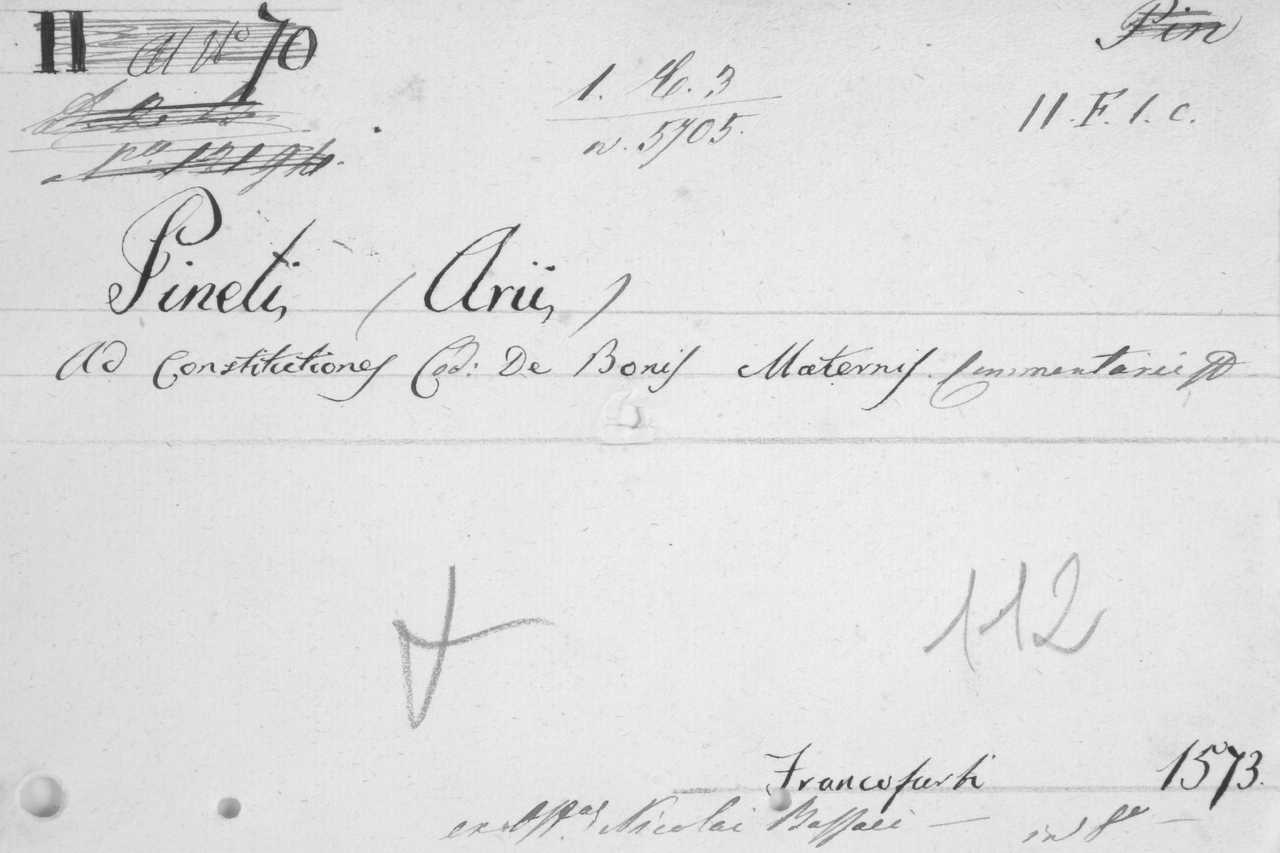 II 70 Pin
1. E. 3 II. F. 1. c.
n. 5705.
Pineti, (Arii,)
Ad Constitutiones Cod: De Bonis Maternis Commentarii
112
Francofurti 1573.
ex Nicolai Bassaei — in 8º —